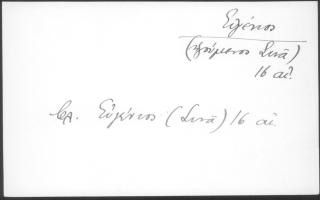 Εὐγένιος
(ἡγούμενος Σινᾶ)
16 αἰ.
βλ. Εὐγένιος (Σινᾶ) 16 αἰ.